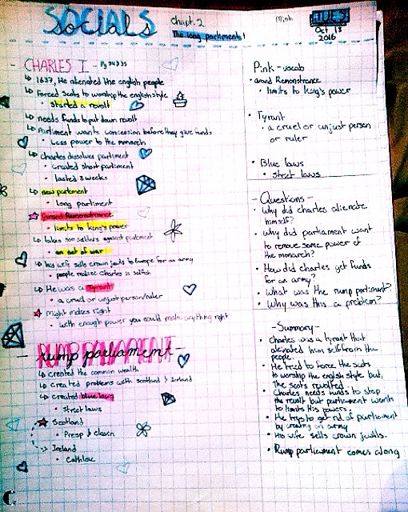 SOCIALS
chapt. 2
The long parliament!
Mink
Oct 13
2016
CHARLES I - Pg 34&35
1637, He alienated the english people
Forced Scots to worship the english style
started a revolt
needs funds to put down revolt
Parliment wants concession before they give funds
Less power to the monarch
charles dissolves parliment
created short parliment
lasted 3 weeks
new parlement
long parliment
Grand Remonstrance
limits to king's power
takes 300 soldiers against parlement
an act of war
his wife sells crown jewls to Europe for an army
people make Charles is selfish
He was a Tyrant
a cruel or unjust person/ruler
Might makes right
with enough power you could make anything right
Rump parliament
created the common wealth
created problems with Scotland & Ireland
created blue laws
Street laws
Scotland
Ireland
Pink - vocab
Grand Remonstrance
limits to king's power
Tyrant
a cruel or unjust person
or ruler
Blue laws
street laws
- Questions -
Why did charles alienate
himself?
why did parliament want
to remove some power of
the monarch?
How did charles get funds
for an army?
What was the rump parliament?
Why was this a problem?
- Summary -
Charles was a tyrant that
alienated him self from the
people
He tried to force the scots
to worship the english style but
The scots revolted
Charles needs funds to stop
the revolt but parliament wants
to limits his powers.
He trys to get rid of parliament
by creating an army
His wife sells crown jewls.
Rump parliament comes along